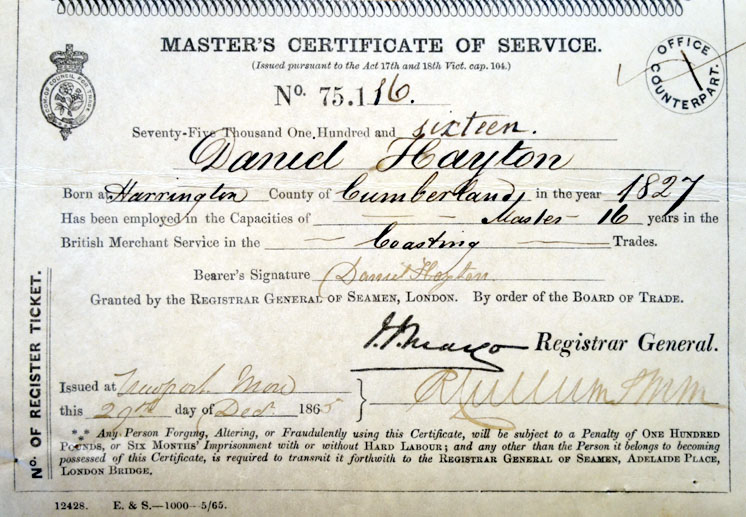 MASTER'S CERTIFICATE OF SERVICE.
(Issued pursuant to the Act 17th and 18th Vict. cap. 104.)
OFFICE COUNTERPART.
No. 75.116.
Seventy-Five Thousand One Hundred and sixteen.
Daniel Hayton
Born at Harrington County of Cumberland, in the year 1827
Has been employed in the Capacities of Master 16 years in the
British Merchant Service in the Coasting Trades.
Bearer's Signature Daniel Hayton
Granted by the REGISTRAR GENERAL OF SEAMEN, LONDON. By order of the BOARD OF TRADE.
Registrar General.
Issued at Newport Mon
this 29th day of Decr 1865
*** Any Person Forging, Altering, or Fraudulently using this Certificate, will be subject to a Penalty of ONE HUNDRED
POUNDS, or SIX MONTHS' IMPRISONMENT with or without HARD LABOUR; and any other than the Person it belongs to becoming
possessed of this Certificate, is required to transmit it forthwith to the REGISTRAR GENERAL OF SEAMEN, ADELAIDE PLACE,
LONDON BRIDGE.
No. OF REGISTER TICKET.
12428. E. & S.—1000—5/65.